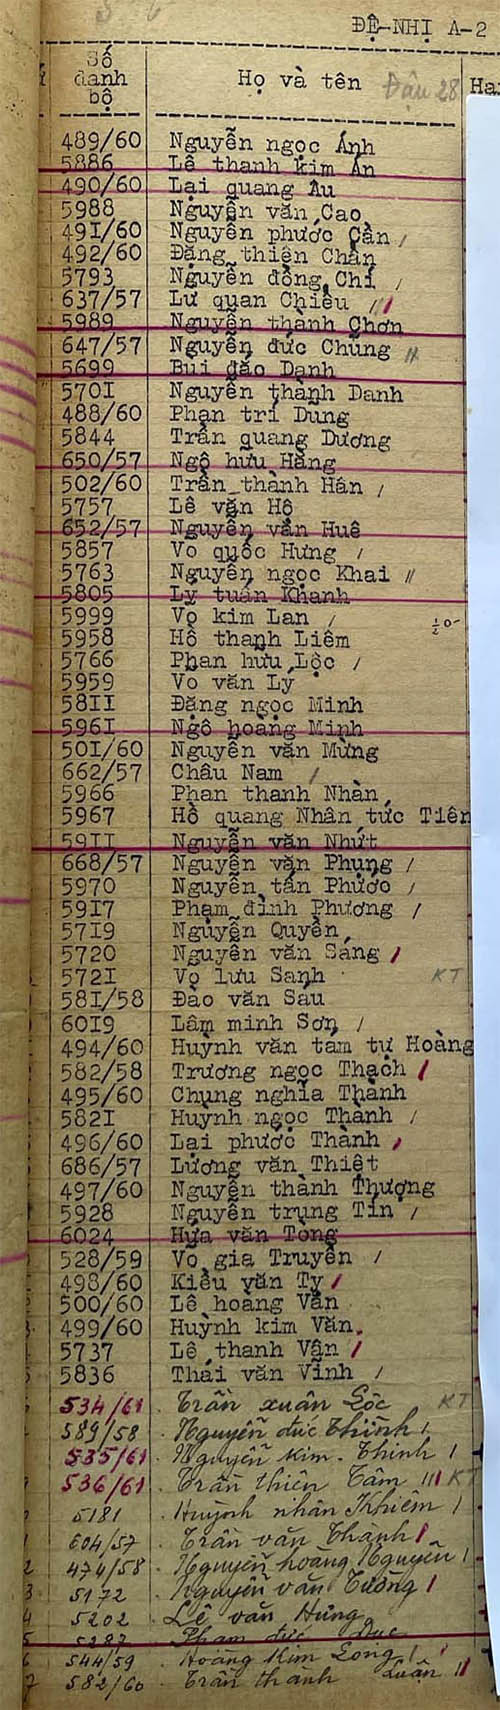 ĐỆ-NHỊ A-2
Số danh bộ Họ và tên Đậu 28 Hạ
489/60 Nguyễn ngọc Ánh
5886 Lê thanh kim Ấn
490/60 Lại quang Âu
5988 Nguyễn văn Cao
491/60 Nguyễn phước Cần /
492/60 Đặng thiện Chẩn
5793 Nguyễn đồng Chí /
637/57 Lư quan Chiêu //
5989 Nguyễn thành Chơn
647/57 Nguyễn đức Chũng //
5699 Bùi đắo Danh
5701 Nguyễn thành Danh
488/60 Phan trí Dũng
5844 Trần quang Dương
650/57 Ngô hữu Hằng
502/60 Trần thành Hán /
5757 Lê văn Hộ
652/57 Nguyễn văn Huê
5857 Vo quốc Hưng /
5763 Nguyễn ngọc Khai //
5805 Lý tuấn Khanh
5999 Vo kim Lan /
5958 Hồ thanh Liêm
5766 Phan hữu Lộc /
5959 Vo văn Lý
5811 Đặng ngọc Minh
5961 Ngô hoàng Minh
501/60 Nguyễn văn Mừng
662/57 Châu Nam /
5966 Phan thanh Nhàn
5967 Hồ quang Nhân tức Tiên
5911 Nguyễn văn Nhứt
668/57 Nguyễn văn Phụng /
5970 Nguyễn tấn Phước /
5917 Phạm đình Phương /
5719 Nguyễn Quyền
5720 Nguyễn văn Sáng /
5721 Vo lưu Sanh KT
581/58 Đào văn Sáu
6019 Lâm minh Sơn /
494/60 Huỳnh văn tam tự Hoàng
582/58 Trương ngọc Thạch /
495/60 Chung nghĩa Thành
5821 Huỳnh ngọc Thành /
496/60 Lại phước Thành /
686/57 Lương văn Thiệt
497/60 Nguyễn thành Thượng
5928 Nguyễn trung Tín /
6024 Hứa văn Tòng
528/59 Vo gia Truyền /
498/60 Kiều văn Tỵ /
500/60 Lê hoàng Vân
499/60 Huỳnh kim Vân
5737 Lê thanh Vân /
5836 Thái văn Vĩnh /
534/61 Trần xuân Lộc KT
589/58 Nguyễn đức Thịnh /
535/61 Nguyễn kim Thinh /
536/61 Trần thiện Tâm /// KT
5181 Huỳnh nhân Khiêm /
604/57 Trần văn Thanh /
474/58 Nguyễn hoàng Nguyên /
5172 Nguyễn văn Tường /
5202 Lê văn Hùng
5287 Phạm đức Dục
544/59 Hoàng Kim Long /
582/60 Trần thành Luận //